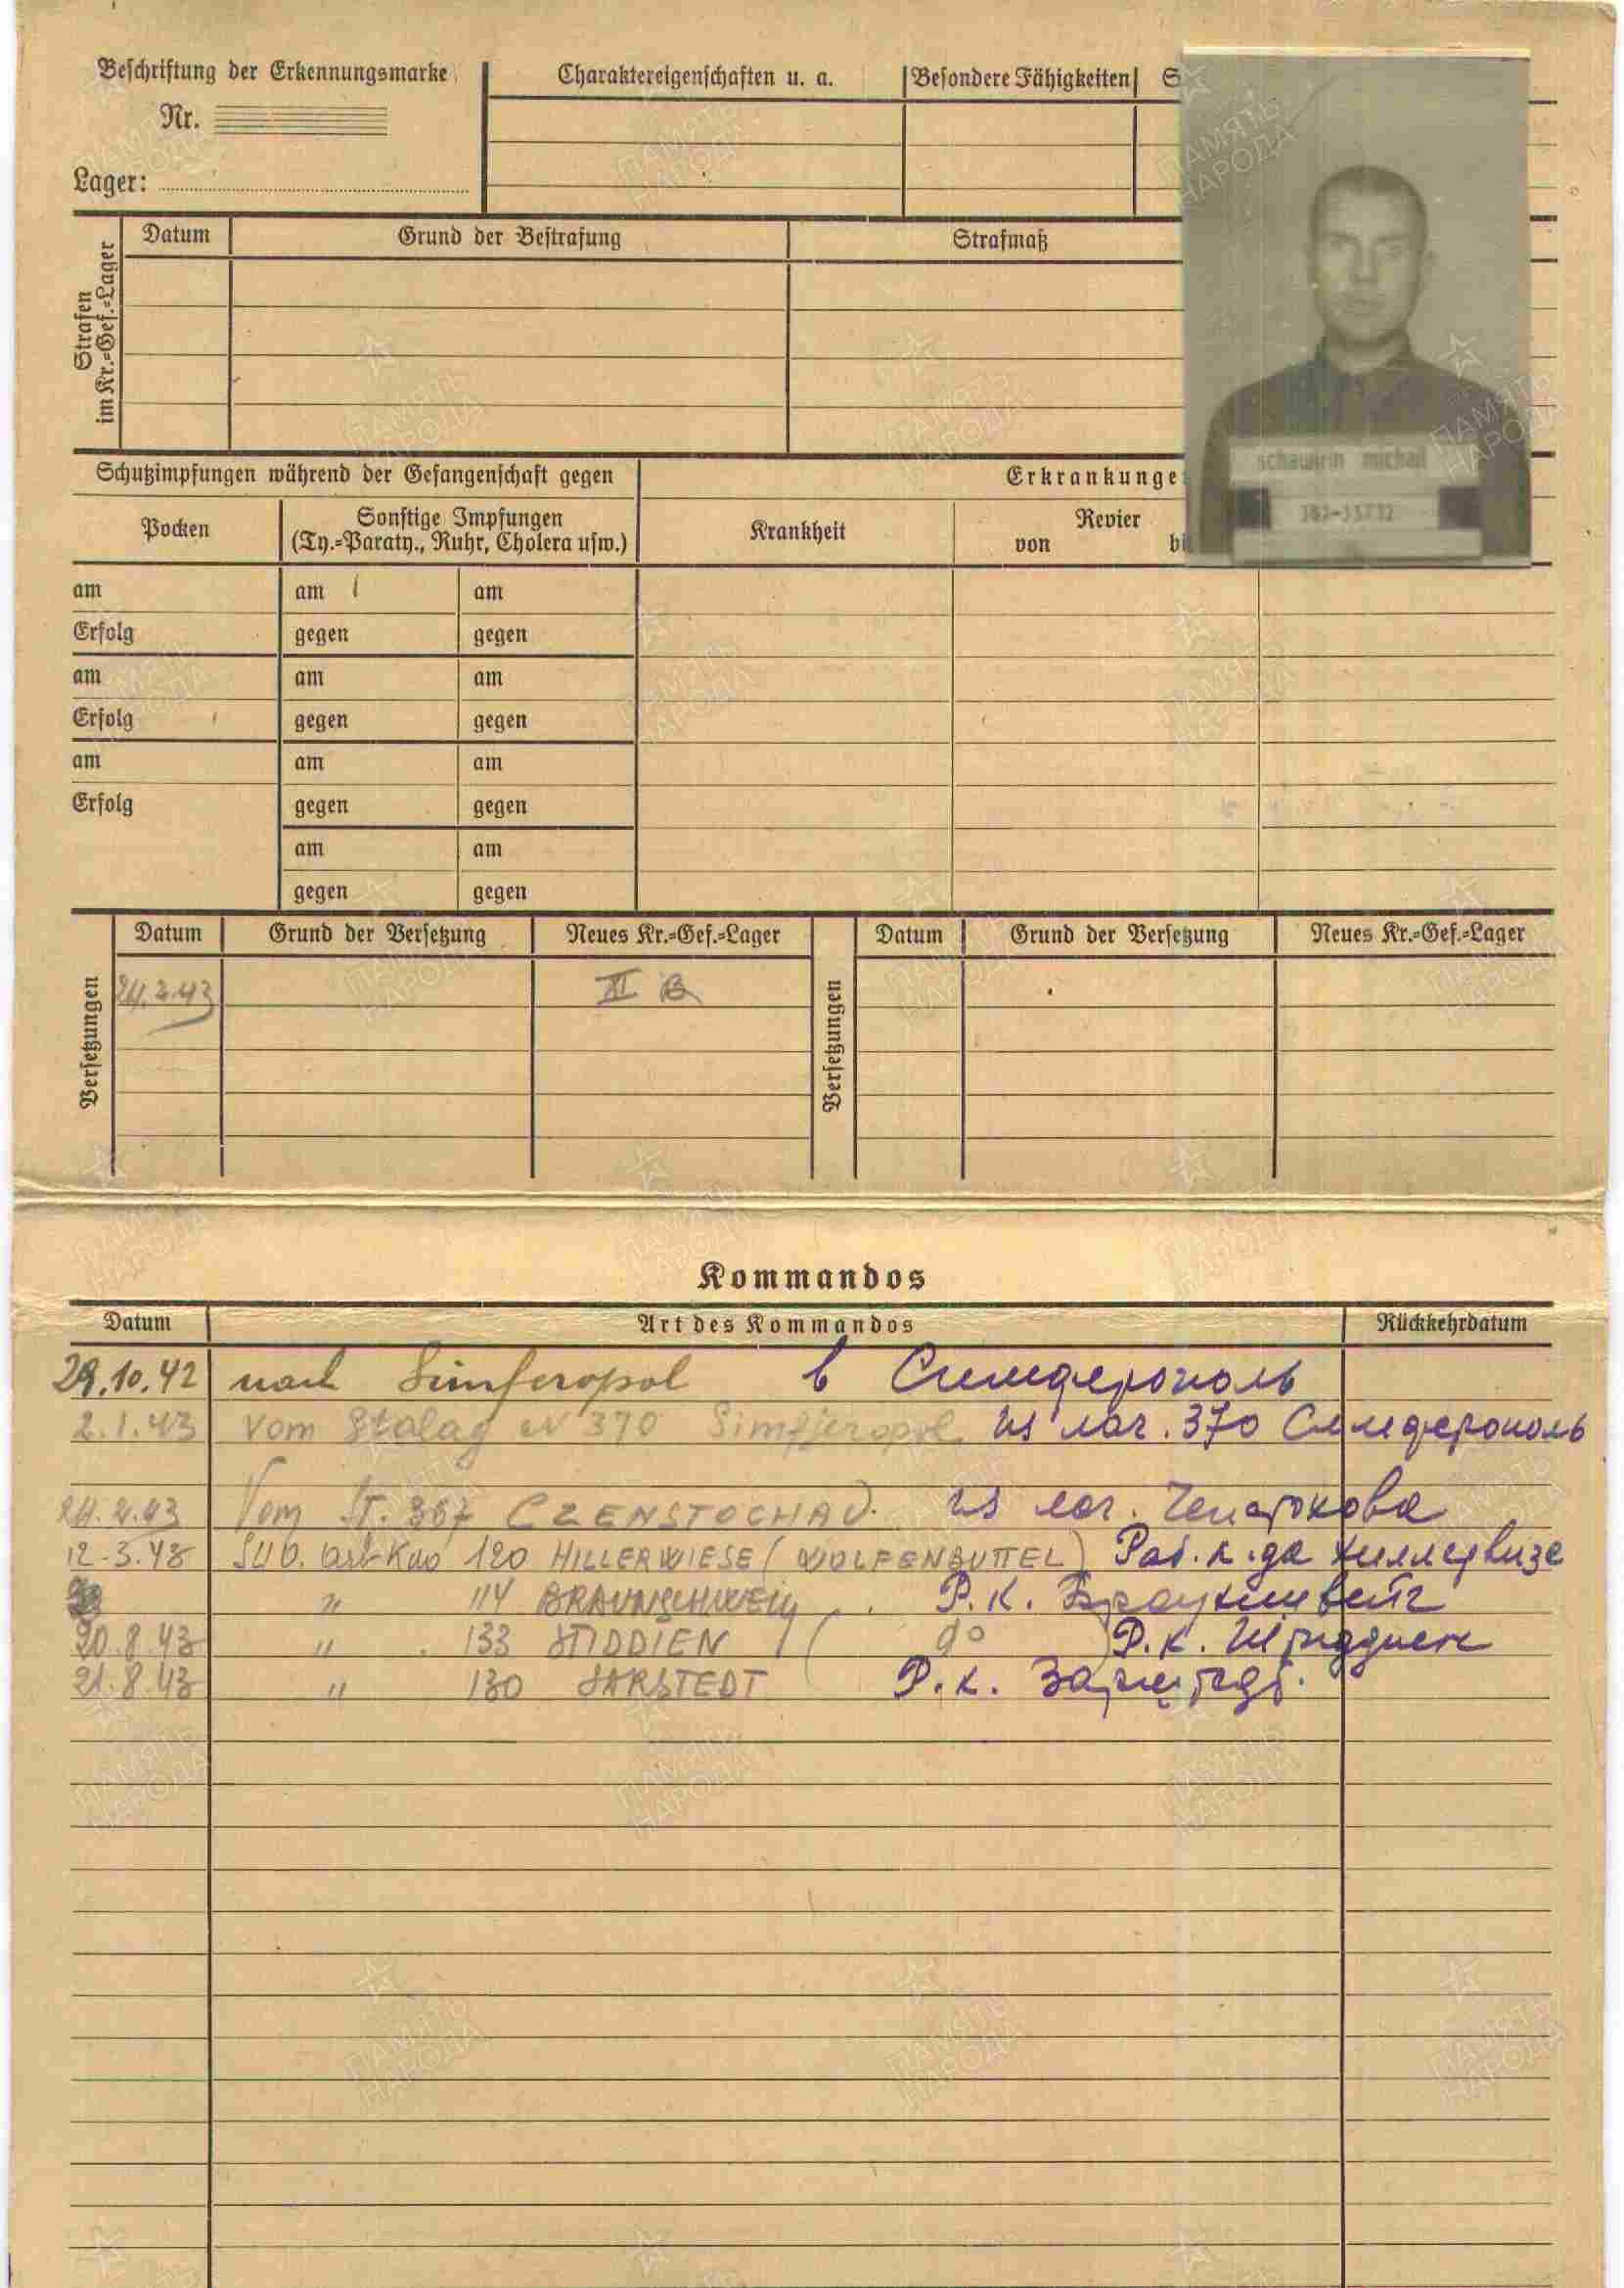 Beschriftung der Erkennungsmarke
Nr.
Lager:
Charaktereigenschaften u. a.
Besondere Fähigkeiten
S
Strafen im Kr.=Gef.=Lager
Datum
Grund der Bestrafung
Strafmaß
schawirin michail
Schutzimpfungen während der Gefangenschaft gegen
Erkrankunge
Pocken
Sonstige Impfungen
(Ty.=Paraty., Ruhr, Cholera usw.)
Krankheit
Revier
von bi
am am am
Erfolg gegen gegen
am am am
Erfolg gegen gegen
am am am
Erfolg gegen gegen
am am
gegen gegen
Versetzungen
Datum Grund der Versetzung Neues Kr.=Gef.=Lager
XI B
Versetzungen
Datum Grund der Versetzung Neues Kr.=Gef.=Lager
Kommandos
Datum Art des Kommandos Rückkehrdatum
29.10.42 nach Simferopol в Симферополь
2.1.43 Vom Stalag N 370 Simfjeropol из лаг. 370 Симферополь
24.2.43 Vom ST. 367 CZENSTOCHAU. из лаг. Ченстохова
12.3.43 120 HILLERWIESE (WOLFENBUTTEL) Раб. к.да Хиллервизе
" 114 BRAUNSCHWEIG Р.К. Брауншвейг
20.8.43 " 133 STIDDIEN ( do ) Р.к. Штиддиен
21.8.43 " 130 SARSTEDT Р.к. Зарштедт.
ПАМЯТЬ НАРОДА